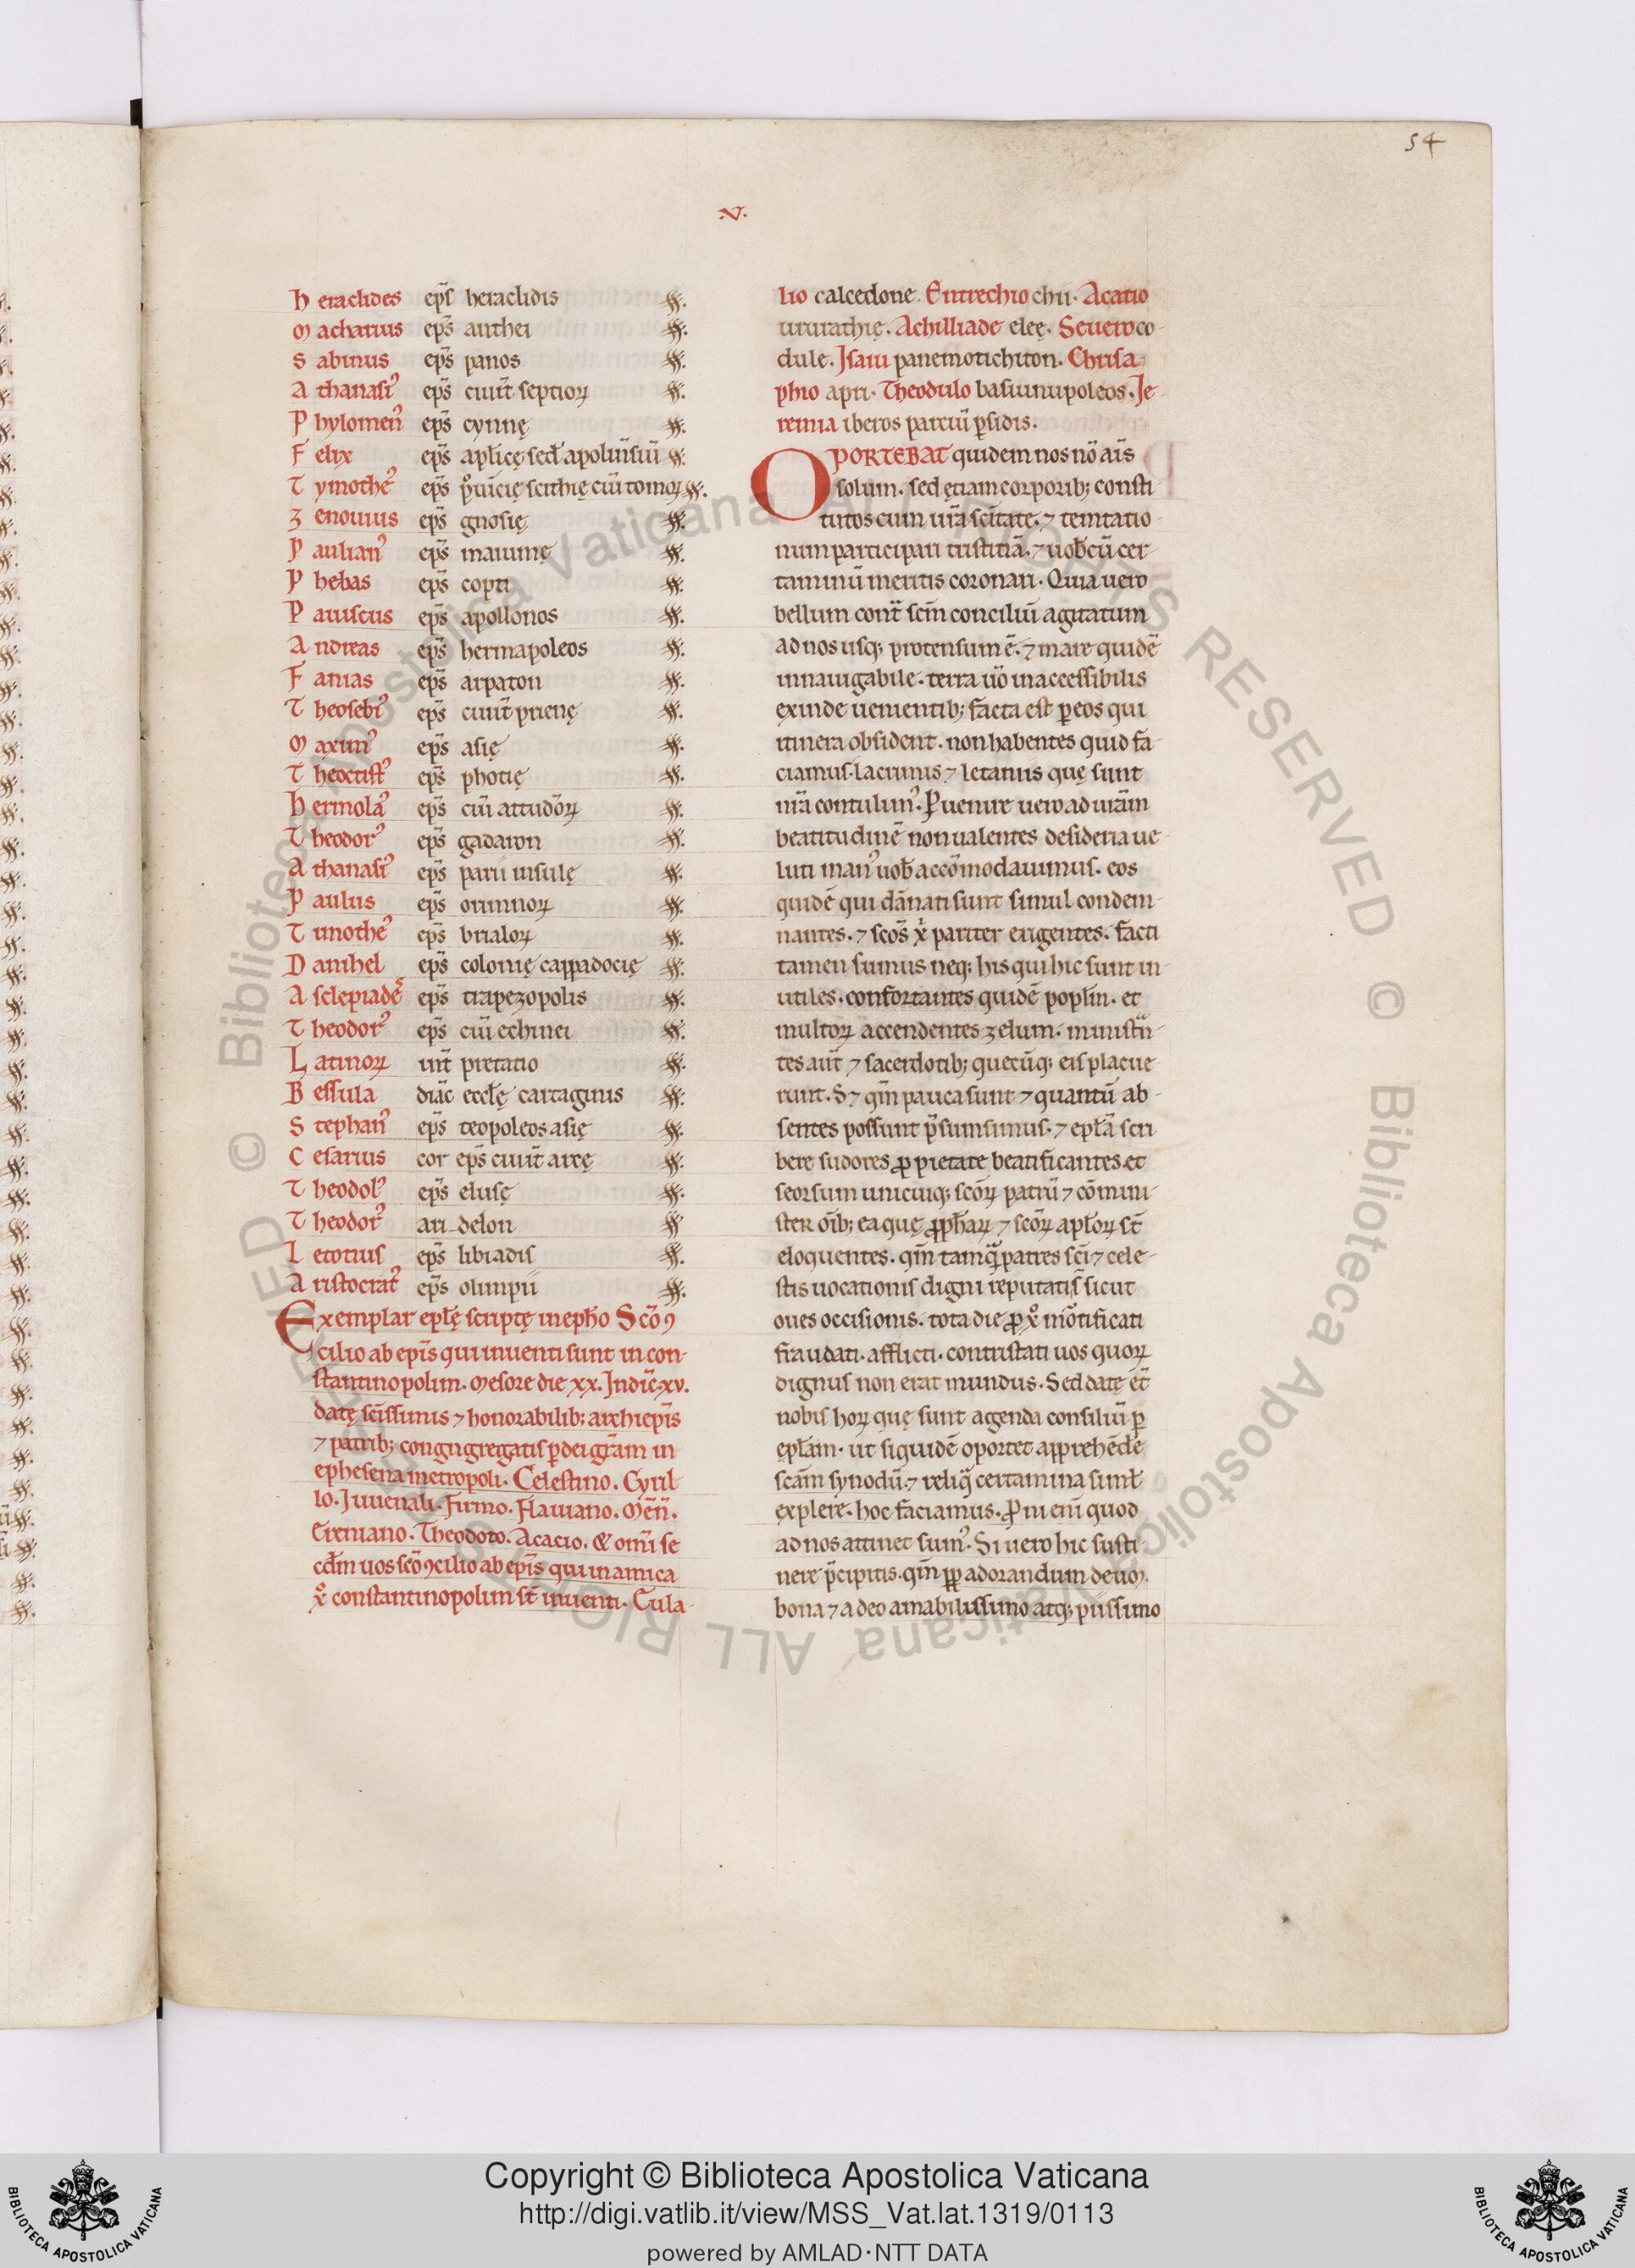 54
.v.
Heraclides ep̃s heraclidis
Macharius ep̃s anthei
Sabinus ep̃s panos
Athanasiꝰ ep̃s ciuit̃ septioꝝ
Phylomenꝰ ep̃s cynnę
Felix ep̃s
Tymotheꝰ ep̃s scithię ciũ tomoꝝ
Zenouius ep̃s gnosię
Paulianꝰ ep̃s maiumę
Phebas ep̃s copti
Pauiscus ep̃s apollonos
Andreas ep̃s hermapoleos
Fanias ep̃s arpaton
Theosebiꝰ ep̃s ciuit̃ prienę
Maximꝰ ep̃s asię
Theoctistꝰ ep̃s photię
Hermolaꝰ ep̃s ciũ attudõꝝ
Theodorꝰ ep̃s gadaron
Athanasiꝰ ep̃s parii insulę
Paulus ep̃s orimnoꝝ
Timotheꝰ ep̃s brialoꝝ
Danihel ep̃s colonię cappadocię
Asclepiadẽs ep̃s trapezopolis
Theodorꝰ ep̃s ciũ echinei
Latinoꝝ int̃ pretatio
Bessula diãc eccłę cartaginis
Stephanꝰ ep̃s teopoleos asię
Cesarius cor ep̃s ciuit̃ arcę
Theodolꝰ ep̃s elusę
Theodorꝰ ari delon
Letotius ep̃s libiadis
Aristocratꝰ ep̃s olimpii
Exemplar epłę scriptę in epho Scõ ꝯ
cilio ab ep̃is qui inuenti sunt in con-
stantinopolim. Mesore die xx. Indic̃. xv.
datę sc̃issimis ⁊ honorabilib; archiep̃is
⁊ patrib; congngregatis ꝑ dei gr̃am in
ephesena metropoli. Celestino. Cyril
lo. Iuuenali. Firmo. Flauiano. Meñ.
Ereniano. Theodoto. Acacio. & omĩ se
cd̃m uos scõ ꝯcilio ab ep̃is qui in amica
xp̃o constantinopolim st̃ inuenti. Eula-
lio calcedone. Entrechio chii. Acatio
Achilliade eleę. Seuero co-
dule. Isaiu panemotichiton. Chrisa-
phio apri. Theodulo Je-
remia iberos parciũ ꝑsidis.
OPORTEBAT quidem nos nõ aĩs
solum. sed ęciam corporib; consti
tutos cum ur̃a sc̃itate. ⁊ temtatio
num participari tristitiã. ⁊ uob̃cũ cer-
taminũ meritis coronari. Quia uero
bellum cont̃ sc̃m conciliũ agitatum
ad nos usq; protensum ẽ. ⁊ mare quidẽ
innauigabile. terra ũo inaccessibilis
exinde uenientib; facta est ꝑ eos qui
itinera obsident. non habentes quid fa-
ciamus. lacrimis ⁊ letaniis quę sunt
nr̃a contulimꝰ. Puenire uero ad ur̃am
beatitudinẽ non ualentes desideria ue-
luti manꝰ uob̃ accõmodauimus. eos
quidẽ qui dãnati sunt simul condem-
nantes. ⁊ scõs xp̃i pariter erigentes. facti
tamen sumus neq; his qui hic sunt in-
utiles. confortantes quidẽ popłm. et
multoꝝ accendentes zelum. ministñ-
tes aut̃ ⁊ sacerdotib; quecũq; eis placue-
runt. S; ⁊ qm̃ pauca sunt ⁊ quantũ ab-
sentes possunt p̃sumsimus. ⁊ epłã scri
bere sudores ꝓ pietate beatificantes. et
seorsum unicuiq; scõꝝ patrũ ⁊ cõmini-
ster oĩb; ea quę ꝓphaꝝ ⁊ scõꝝ apłoꝝ st̃
eloquentes. qm̃ tamq̃ patres sc̃i ⁊ cele-
stis uocationis digni reputatis̃ sicut
oues occisionis. tota die ꝓ xp̃o mõtificati
fraudati. afflicti. contristati uos quoꝝ
dignus non erat mundus. Sed datę et̃
nobis hoꝝ quę sunt agenda consiliũ ꝑ
epłam. ut siquidẽ oportet apprehẽde
sc̃am synodũ. ⁊ reliq̃ certamina simł
explere. hoc faciamus. ꝓni eni quod
ad nos attinet sumꝰ. Si uero hic susti-
nere p̃cipitis. qm̃ ꝓꝑ adorandum
bona ⁊ a deo amabilissimo atq; piissimo
Copyright © Biblioteca Apostolica Vaticana
http://digi.vatlib.it/view/MSS_Vat.lat.1319/0113
powered by AMLAD·NTT DATA
BIBLIOTECA APOSTOLICA VATICANA
BIBLIOTECA APOSTOLICA VATICANA